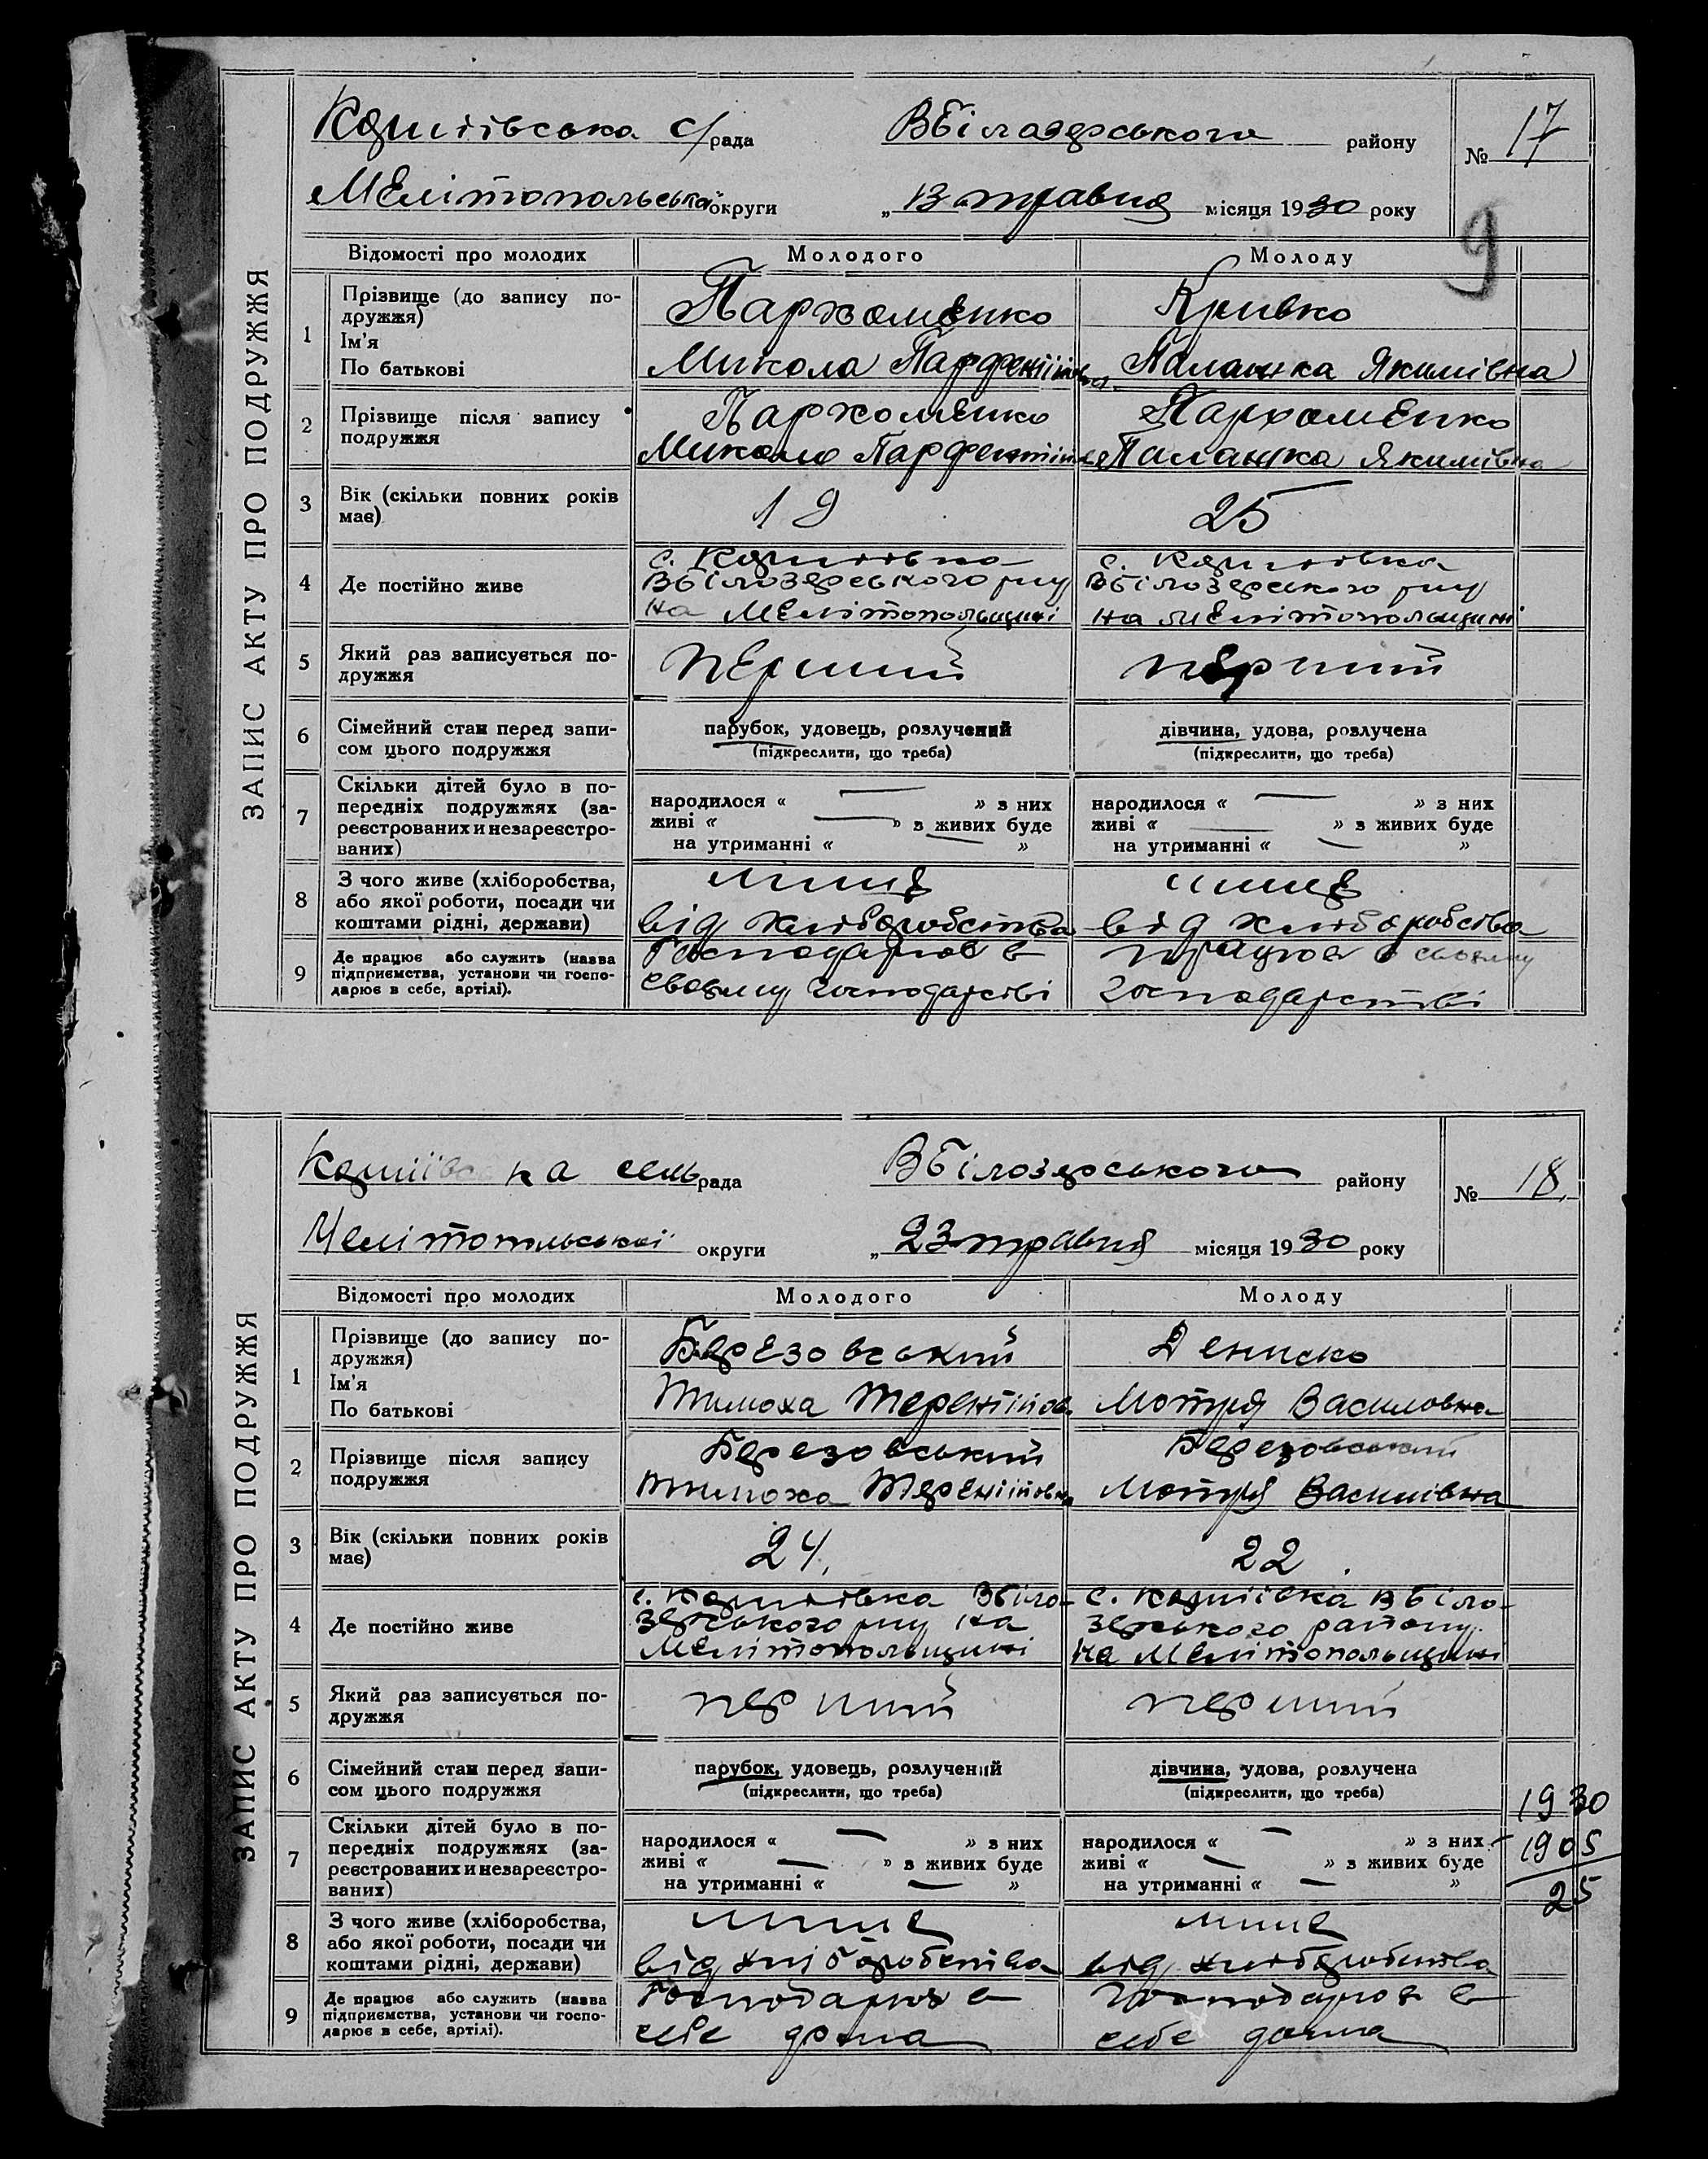 ЗАПИС АКТУ ПРО ПОДРУЖЖЯ
с/рада ВБілозерського району № 17
Мелітопольська округи „13 травня місяця 1930 року
9
Відомості про молодих Молодого Молоду
1 Прізвище (до запису подружжя) Пархоменко Кривко
Ім'я
По батькові Микола Парфентійович Палашка Якимівна
2 Прізвище після запису подружжя Пархоменко Пархоменко
Микола Палашка Якимівна
3 Вік (скільки повних років має) 19 25
4 Де постійно живе с. с.
ВБілозерського р-ну ВБілозерського р-ну
на Мелітопольщині на Мелітопольщині
5 Який раз записується подружжя перший перший
6 Сімейний стан перед записом цього подружжя парубок, удовець, розлучений дівчина, удова, розлучена
(підкреслити, що треба) (підкреслити, що треба)
7 Скільки дітей було в попередніх подружжях (зареєстрованих и незареєстрованих) народилося « — » з них народилося « — » з них
живі « — » з живих буде живі « — » з живих буде
на утриманні « — » на утриманні « — »
8 З чого живе (хліборобства, або якої роботи, посади чи коштами рідні, держави) лише лише
від хліборобства від хліборобства
9 Де працює або служить (назва підприємства, установи чи господарює в себе, артілі). Господарює в працює в своєму
своєму господарстві господарстві
ЗАПИС АКТУ ПРО ПОДРУЖЖЯ
рада ВБілозерського району № 18.
Мелітопольської округи „23 травня місяця 1930 року
Відомості про молодих Молодого Молоду
1 Прізвище (до запису подружжя) Березовський Дениско
Ім'я
По батькові Тимоха Терентійов. Мотря Василовна
2 Прізвище після запису подружжя Березовський Березовський
Тимоха Мотря Василівна
3 Вік (скільки повних років має) 24. 22
4 Де постійно живе с. ВБіло- с. ВБіло-
зерського р-ну на зерського району
Мелітопольщині на Мелітопольщині
5 Який раз записується подружжя перший перший
6 Сімейний стан перед записом цього подружжя парубок, удовець, розлучений дівчина, удова, розлучена
(підкреслити, що треба) (підкреслити, що треба)
7 Скільки дітей було в попередніх подружжях (зареєстрованих и незареєстрованих) народилося « — » з них народилося « — » з них
живі « — » з живих буде живі « — » з живих буде
на утриманні « — » на утриманні « — »
1930
- 1905
25
8 З чого живе (хліборобства, або якої роботи, посади чи коштами рідні, держави) лише лише
від хліборобства від хліборобства
9 Де працює або служить (назва підприємства, установи чи господарює в себе, артілі). Господарює в Господарює в
себе дома себе дома